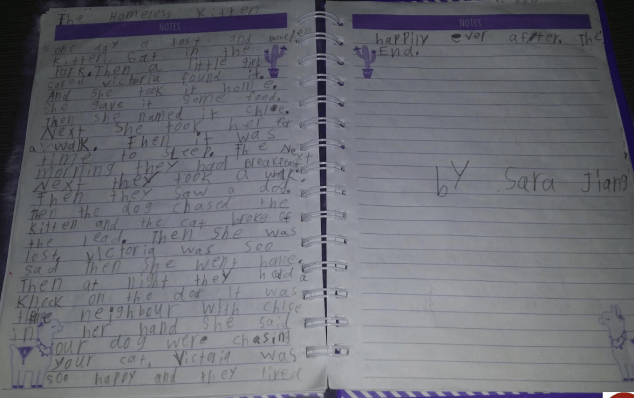 The Homeless Kitten
NOTES
one day a lost and
kitten sat in the
Park. Then a little girl
called Victoria found it.
And she took it home.
She gave it some food.
Then she named it Chloe.
Next she took her for
a walk. Then it was
time to sleep. The Next
morning they had Breakfast
Next they took a walk.
Then they saw a dog.
Then the dog chased the
kitten and the cat broke of
the lead. Then she was
lost. Victoria was soo
sad Then she went home.
Then at night they had a
knock on the It was
the neighbour with Chloe
in her hand she said
our dog were chasing
your cat. Victoria was
soo happy and they lived
NOTES
happily ever after. The
End.
by Sara Jiang